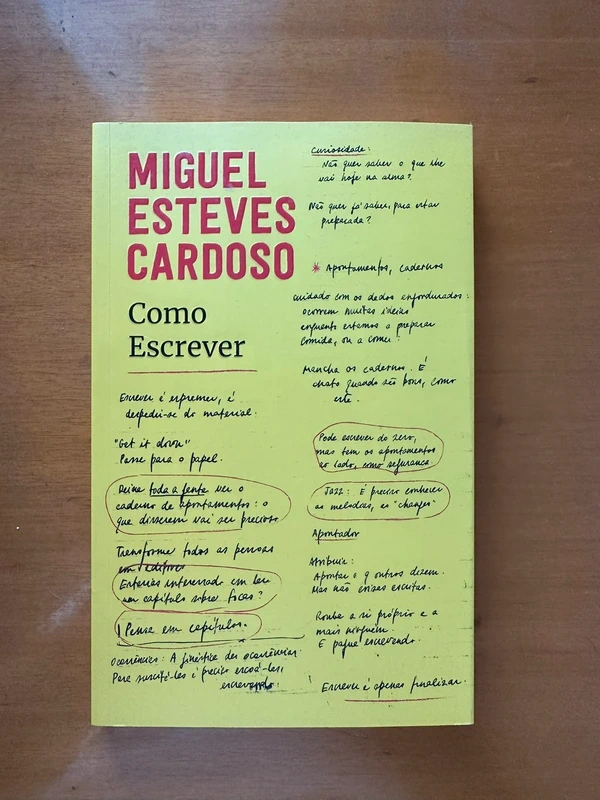 MIGUEL
ESTEVES
CARDOSO
Como
Escrever
Escrever é espremer, é
despedir-se do material.
"Get it down"
Passe para o papel.
Deixe toda a gente ver o
caderno de apontamentos: o
que disserem vai ser precioso
Transforme todas as pessoas
em editores
Estarias interessado em ler
um capítulo sobre focas?
Pense em capítulos.
Ocorrências: A ginástica das ocorrências.
Para suscitá-las é preciso escoá-las,
escrevendo.
Curiosidade:
Não quer saber o que lhe
vai hoje na alma?
Não quer já saber, para estar
preparada?
* Apontamentos, cadernos
Cuidado com os dedos engordurados:
ocorrem muitas ideias
enquanto estamos a preparar
comida, ou a comer.
Mancha os cadernos. É
chato quando são bons, como
este.
Pode escrever do zero,
mas tem os apontamentos
ao lado, como segurança.
JAZZ: É preciso conhecer
as melodias, as "changes"
Apontador
Atribuir:
Apontar o q outros dizem.
Mas não coisas escritas.
Rouba a si próprio e a
mais ninguém.
E pague escrevendo.
Escrever é apenas finalizar.